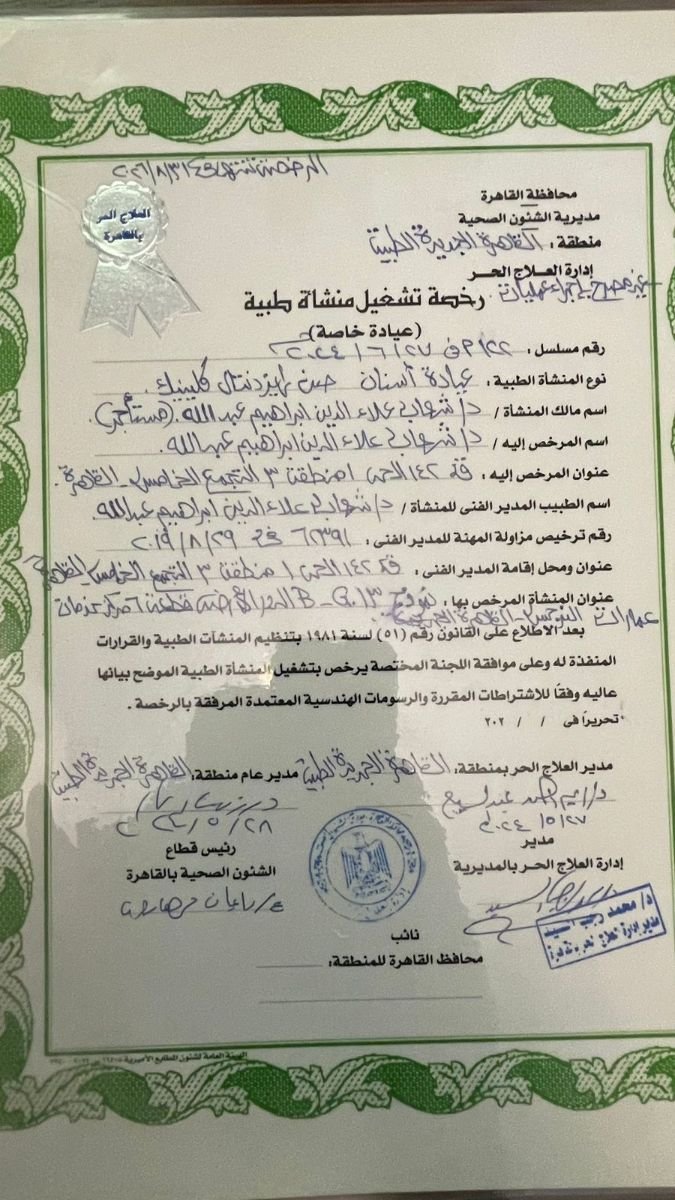 الرخصة تنتهى فى ٢٠٢٦/٨/٣١
العلاج الحر
بالقاهرة
محافظة القاهرة
مديرية الشئون الصحية
منطقة : القاهرة الجديدة الطبية
إدارة العلاج الحر
غير مصرح بإجراء عمليات
رخصة تشغيل منشأة طبية
(عيادة خاصة)
رقم مسلسل : ٢٠٢٤/٦/٢٧
نوع المنشأة الطبية : عيادة أسنان دنتال كلينيك
اسم مالك المنشأة / د/ شهاب علاء الدين ابراهيم عبد الله (مستأجر)
اسم المرخص إليه : د/ شهاب علاء الدين ابراهيم عبدالله
عنوان المرخص إليه : ١٤٢ الحى ١ منطقة ٣ التجمع الخامس - القاهرة
اسم الطبيب المدير الفنى للمنشأة / د/ شهاب علاء الدين ابراهيم عبدالله
رقم ترخيص مزاولة المهنة للمدير الفنى : فى ٢٠١٩/٨/٢٩
عنوان ومحل إقامة المدير الفنى : ١٤٢ الحى ١ منطقة ٣ التجمع الخامس القاهرة
عنوان المنشأة المرخص بها : قطعة ٦ مركز خدمات
عمارات النرجس - القاهرة الجديدة
بعد الاطلاع على القانون رقم (٥١) لسنة ١٩٨١ بتنظيم المنشآت الطبية والقرارات
المنفذة له وعلى موافقة اللجنة المختصة يرخص بتشغيل المنشأة الطبية الموضح بيانها
عاليه وفقاً للاشتراطات المقررة والرسومات الهندسية المعتمدة المرفقة بالرخصة .
تحريراً فى / / ٢٠٢
مدير العلاج الحر بمنطقة: القاهرة الجديدة الطبية
مدير عام منطقة: القاهرة الجديدة الطبية
٢٠٢٤/٥/٢٧
٢٠٢٤/٥/٢٨
مدير
إدارة العلاج الحر بالمديرية
رئيس قطاع
الشئون الصحية بالقاهرة
د/ محمد رجب السيد
نائب
محافظ القاهرة للمنطقة:
الهيئة العامة لشئون المطابع الأميرية